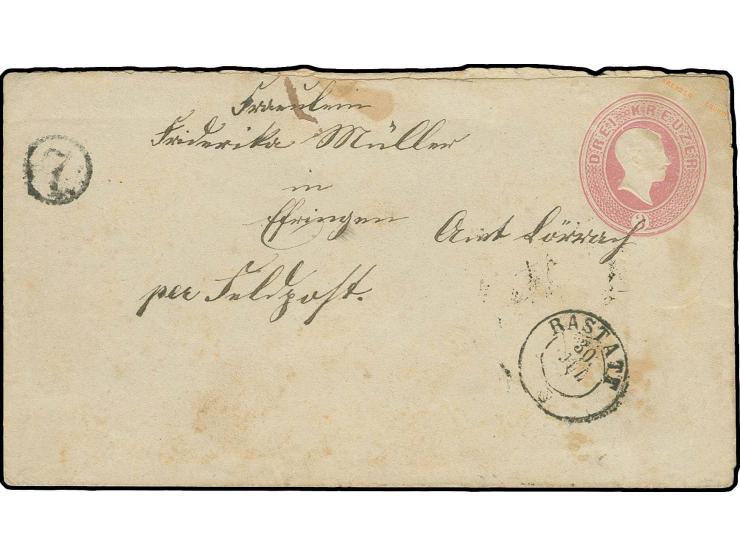 DREI KREUZER
3
7
Fraeulein
Friderika Müller
in
Efringen
Amt Lörrach
per Feldpost.
RASTATT
30
JUL